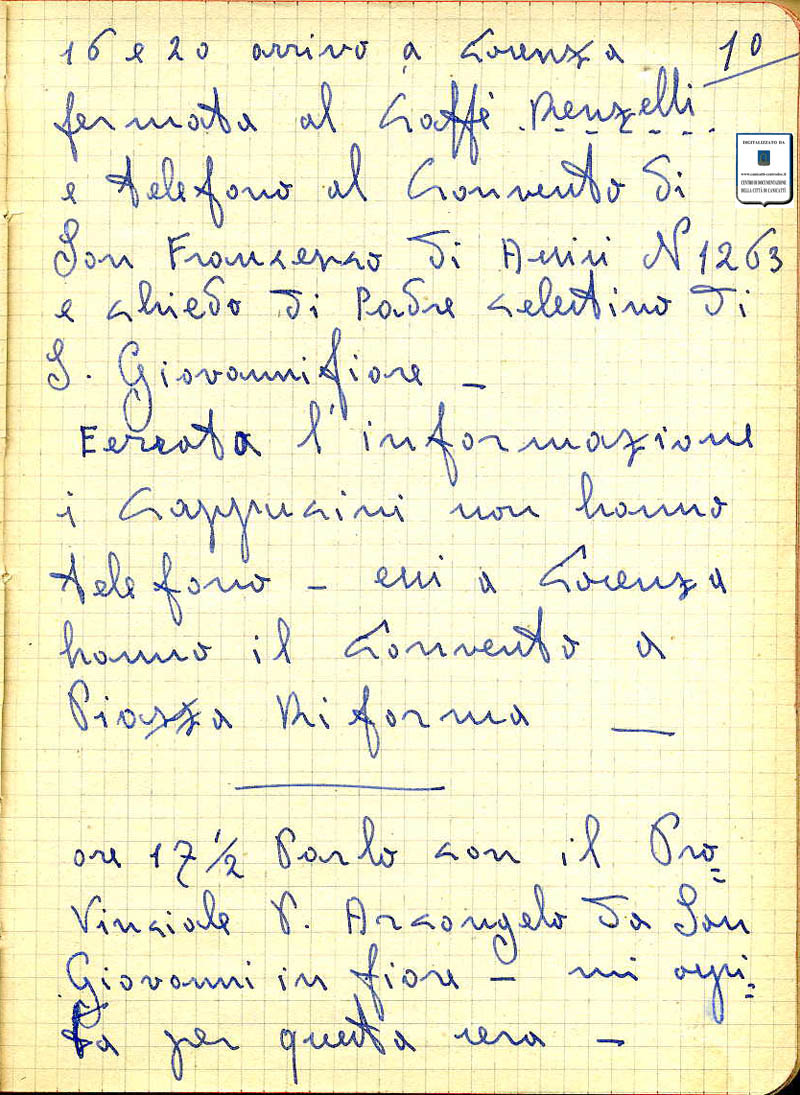 10
16 e 20 arrivo a Cosenza
fermata al Caffè Renzelli
e telefono al Convento di
San Francesco di Assisi N 1263
e chiedo di Padre Celestino di
S. Giovannifiore –
Errata l'informazione
i Cappuccini non hanno
telefono – essi a Cosenza
hanno il Convento a
Piazza Riforma —
ore 17 1/2 Parlo con il Pro=
vinciale P. Arcangelo da San
Giovanni in fiore – mi ospi=
ta per questa sera –
DIGITALIZZATO DA
CENTRO DI DOCUMENTAZIONE
DELLA CITTÀ DI CANICATTÌ